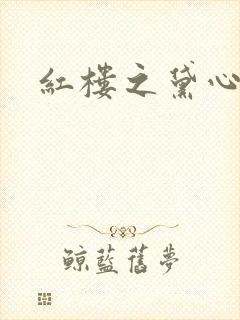 紅樓之黛心
鯨藍舊夢